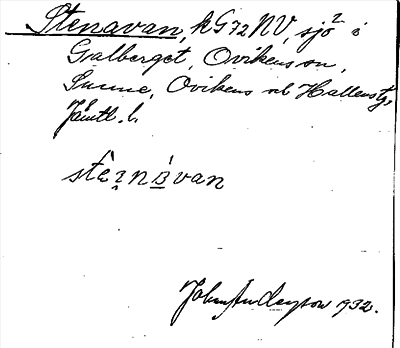 Stenavan, kG72NV, sjö i
Galberget, Ovikens sn,
Sunne, Ovikens och Hallens tg,
Jämtl. l.
John Anderson 1932.